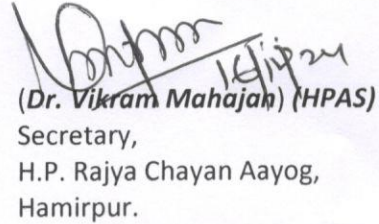 (Dr. Vikram Mahajan) (HPAS)
Secretary,
H.P. Rajya Chayan Aayog,
Hamirpur.